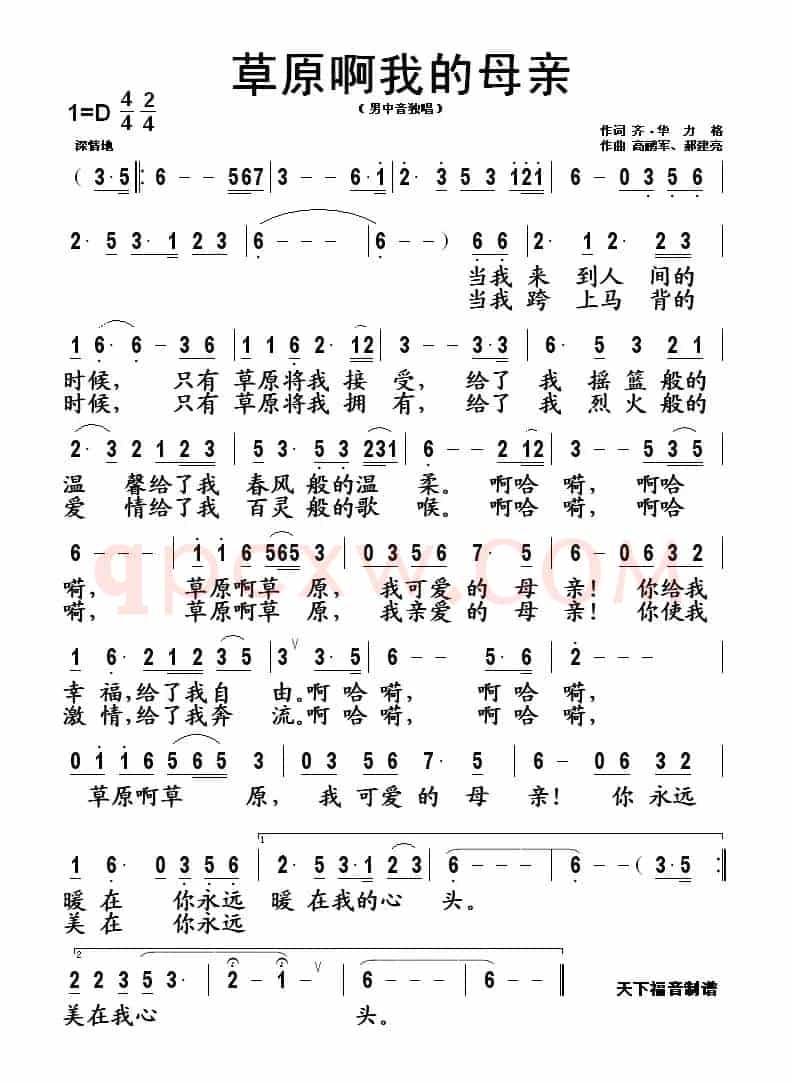 草原啊我的母亲
（男中音独唱）
1=D 4/4 2/4
深情地
作词 齐·华 力 格
作曲 高鹏军、郝建亮
( 3·5 ‖: 6 - - 567 | 3 - - 6·1 | 2· 3 5 3 121 | 6 - 0 3 5 6 |
2· 5 3·1 2 3 | 6 - - - | 6 - - ) 6 6 | 2· 1 2· 2 3 |
当我 来 到人 间的
当我 跨 上马 背的
1 6· 6 - 3 6 | 1 1 6 2· 12 | 3 - - 3·3 | 6· 5 3 2 1 |
时候， 只有 草原将我 接 受， 给了 我 摇篮般的
时候， 只有 草原将我 拥 有， 给了 我 烈火般的
2· 3 2 1 2 3 | 5 3· 3·5 231 | 6 - - 2 12 | 3 - - 5 3 5 |
温 馨给了我 春风 般的温 柔。 啊哈 嗬， 啊哈
爱 情给了我 百灵 般的歌 喉。 啊哈 嗬， 啊哈
6 - - - | 1·1 6 565 3 | 0 3 5 6 7· 5 | 6 - 0 1 2 3 |
嗬， 草原啊草 原， 我可爱 的 母 亲！ 你给我
嗬， 草原啊草 原， 我亲爱 的 母 亲！ 你使我
qpcxw.COM
1 6· 2 1 2 3 5 | 3 V 3·5 | 6 - - 3 5 6 | 2 - - |
幸 福，给了我自 由。啊 哈 嗬， 啊 哈 嗬，
激 情，给了我奔 流。啊 哈 嗬， 啊 哈 嗬，
0 1 1 6 5 6 5 3 | 0 3 5 6 7· 5 | 6 - 0 6 3 2 |
草原啊草 原， 我 可爱 的 母 亲！ 你 永远
1 6· 0 3 5 6 | 1 2· 5 3·1 2 3 | 6 - - - | 6 - ( 3·5 :‖
暖 在 你永远 暖 在我的心 头。
美 在 你永远
2 2 2 3 5 3· | 2 - 1 - V | 6 - - - | 6 - - - ‖
美在我心 头。
天下福音制谱